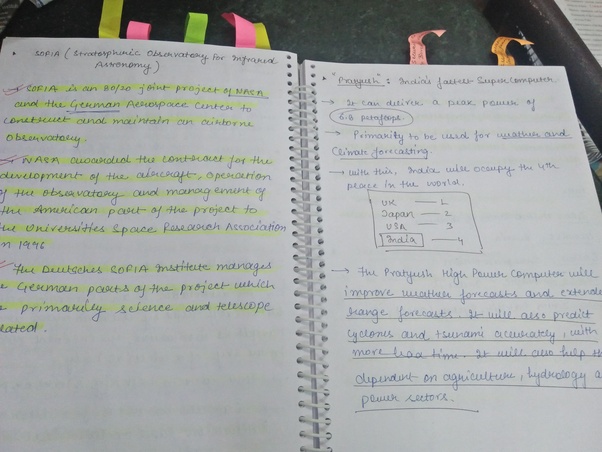 SOFIA (Stratospheric Observatory For Infrared
Astronomy)
SOFIA is an 80/20 joint project of NASA
and the German Aerospace Center to
construct and maintain an airborne
observatory.
NASA awarded the contract for the
development of the aircraft, operation
of the observatory and management of
the American part of the project to
the Universities Space Research Association
in 1996
The Deutsches SOFIA Institute manages
German parts of the project which
primarily science and telescope
lated.
"Pratyush" : India's fastest Supercomputer
→ It can deliver a peak power of
6.8 petaflops.
→ Primarily to be used for weather and
Climate forecasting.
→ With this, India will occupy the 4th
place in the world.
UK — 1
Japan — 2
USA — 3
India — 4
→ The Pratyush High Power Computer will
improve weather forecasts and extende
range forecasts. It will also predict
cyclones and tsunami accurately, with
more lead time. It will also help th
dependent on agriculture, hydrology a
power sectors.